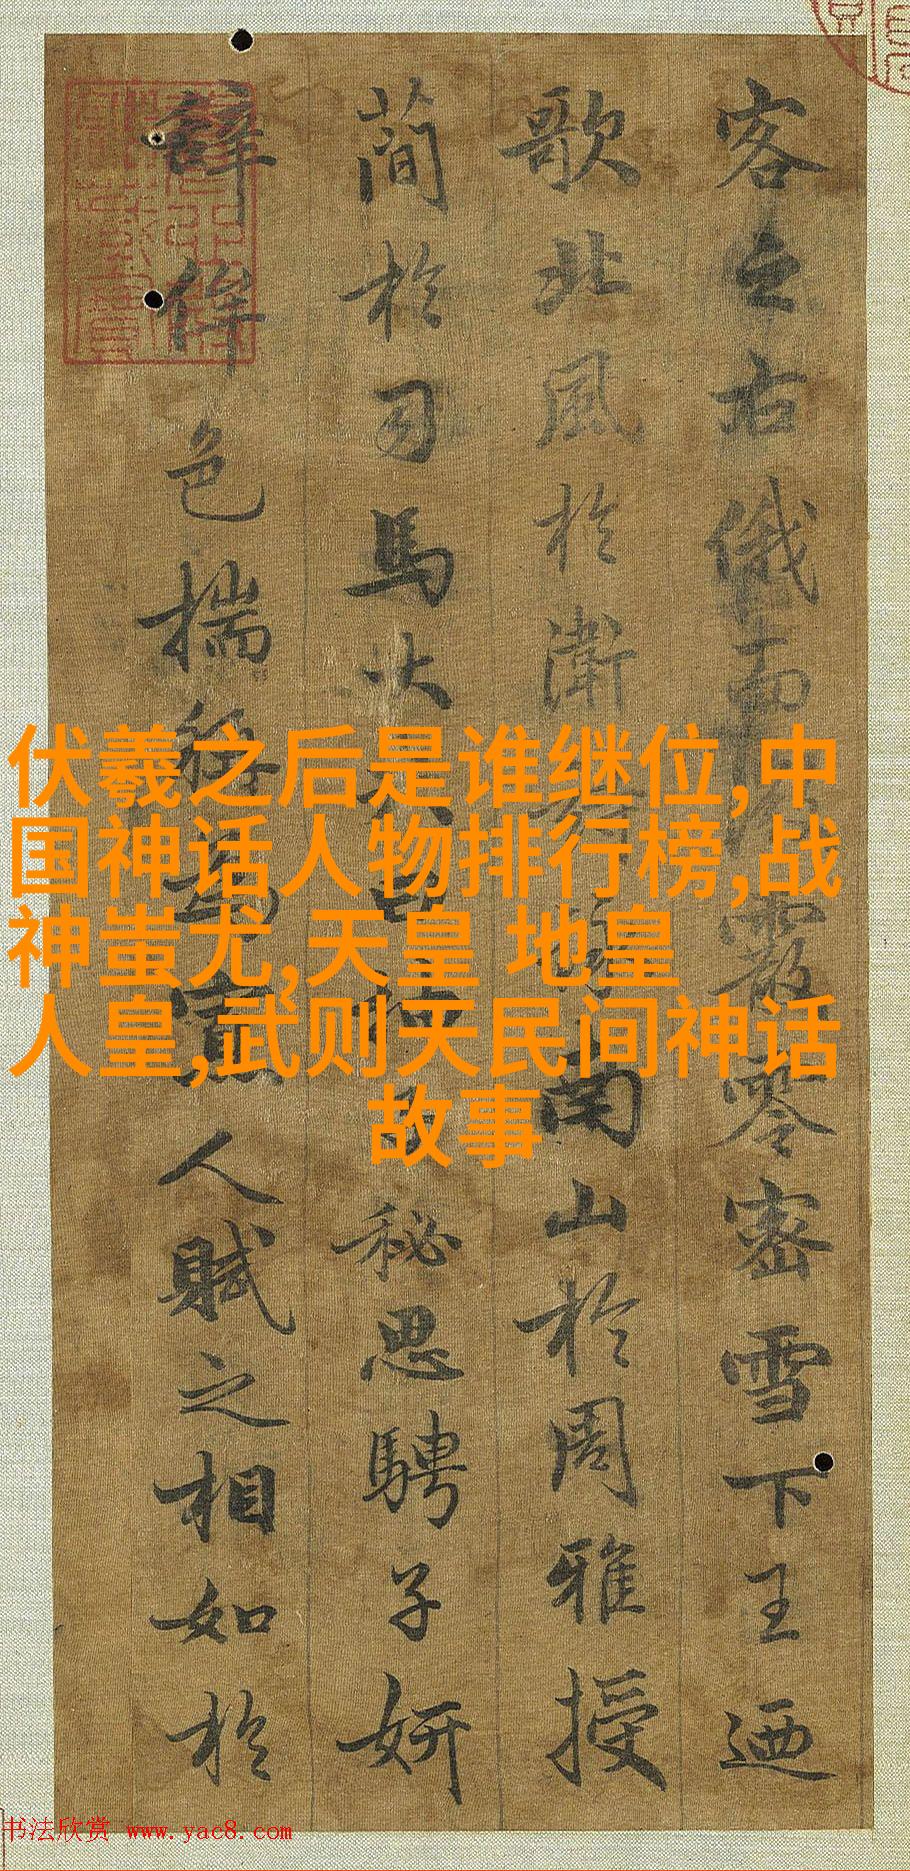 客之右俄而霰零密雪下王迺
歌北風於衛南山於周雅授
簡於司馬大秘思騁子妍
辭侔色揣稱人賦之相如於
伏羲之后是谁继位,中
国神话人物排行榜,战
神蚩尤,天皇 地皇
人皇,武则天民间神话
故事
书法欣赏 www.yac8.com